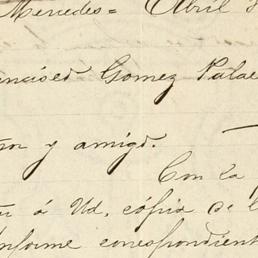 Mercedes= Abril
ancisco Gomez Palac
ñor y amigo.
Con la
á Ud. cópia de l
Informe correspondient